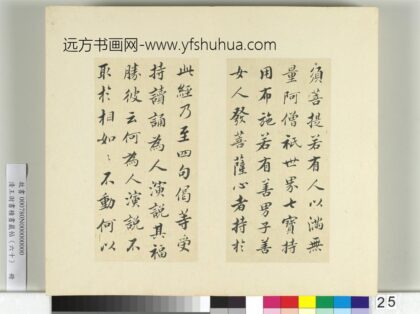 远方书画网-www.yfshuhua.com
須菩提若有人以滿無
量阿僧祇世界七寶持
用布施若有善男子善
女人發菩薩心者持於
此經乃至四句偈等受
持讀誦為人演說其福
勝彼云何為人演說不
取於相如〻不動何以
25